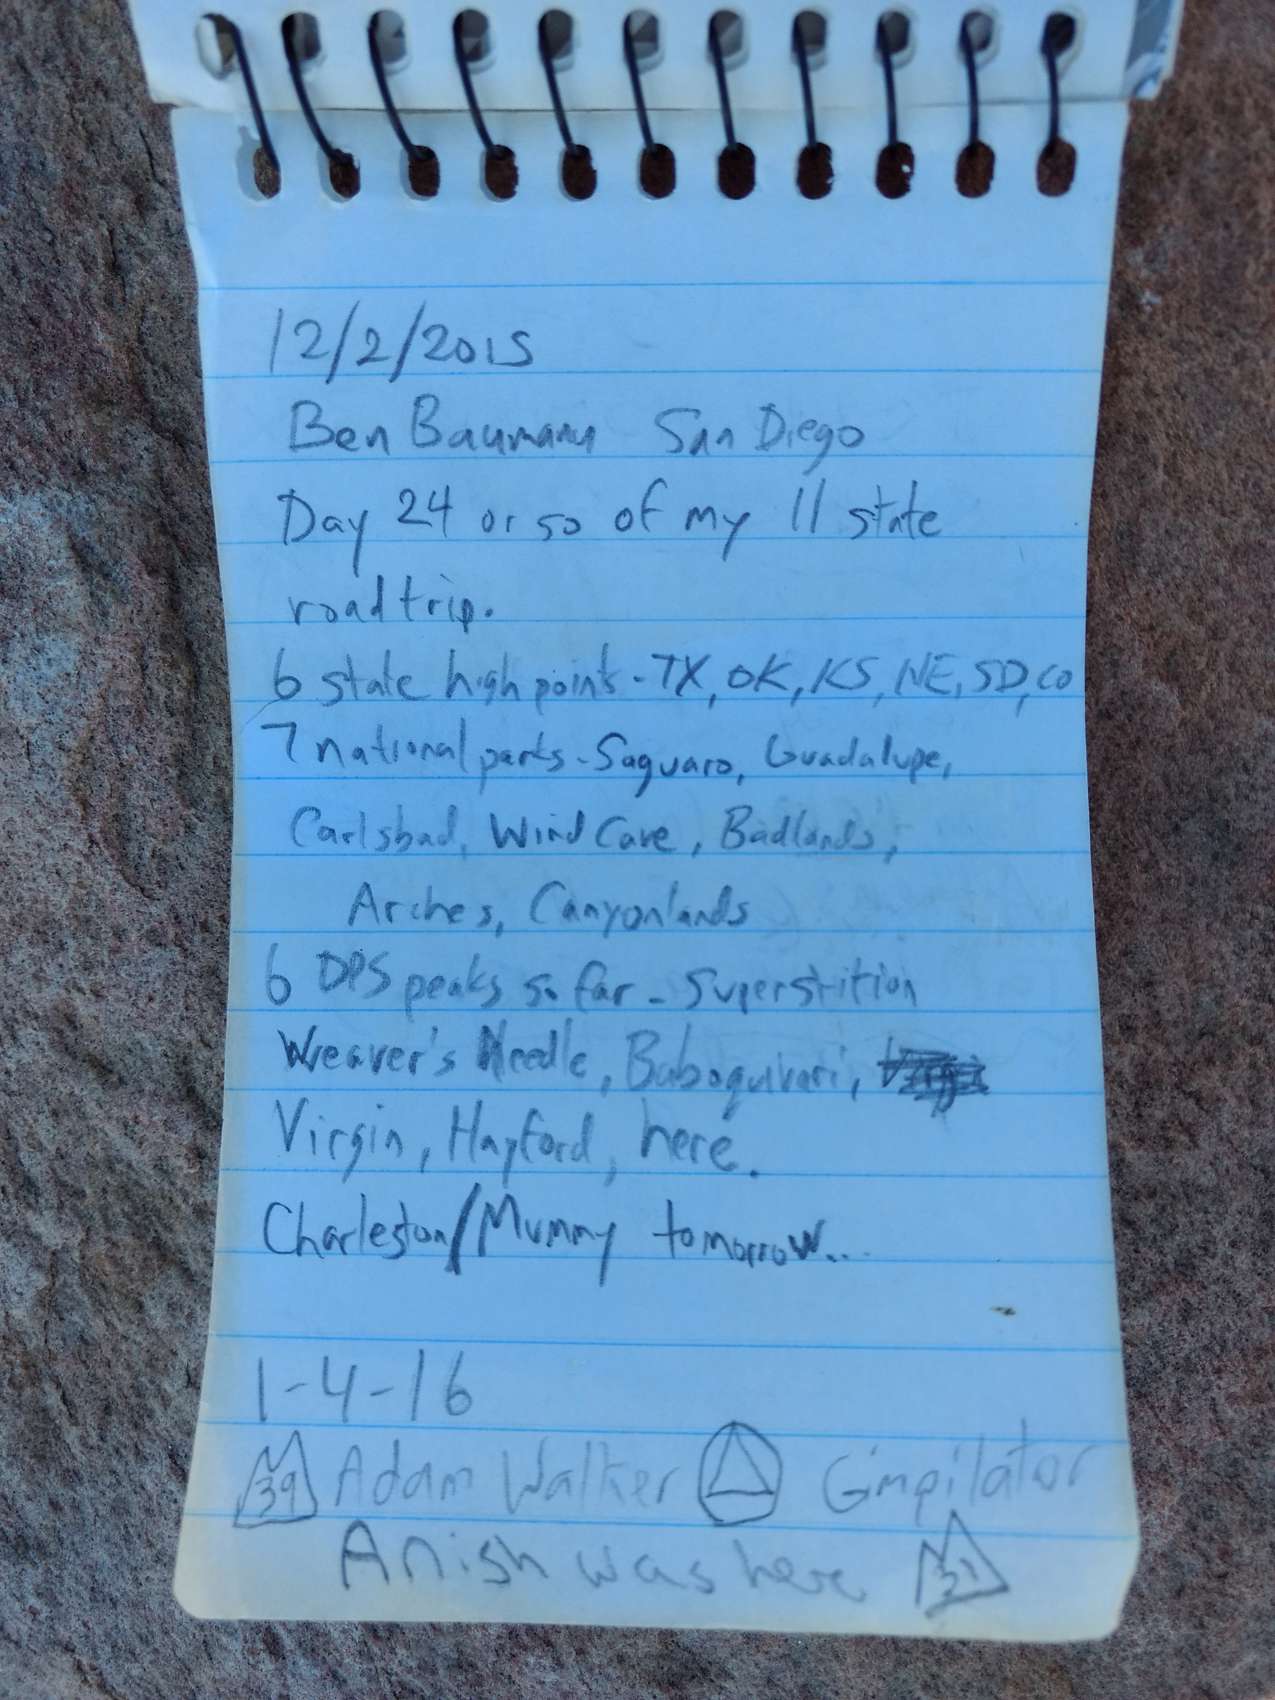 12/2/2015
Ben Baumann San Diego
Day 24 or so of my 11 state
roadtrip.
6 state high points - TX, OK, KS, NE, SD, CO
7 national parks - Saguaro, Guadalupe,
Carlsbad, Wind Cave, Badlands,
Arches, Canyonlands
6 DPS peaks so far - Superstrition
Weaver's Needle, Baboquivari,
Virgin, Hayford, here.
Charleston/Mummy tomorrow...
1-4-16
39 Adam Walker Gimpilator
Anish was here